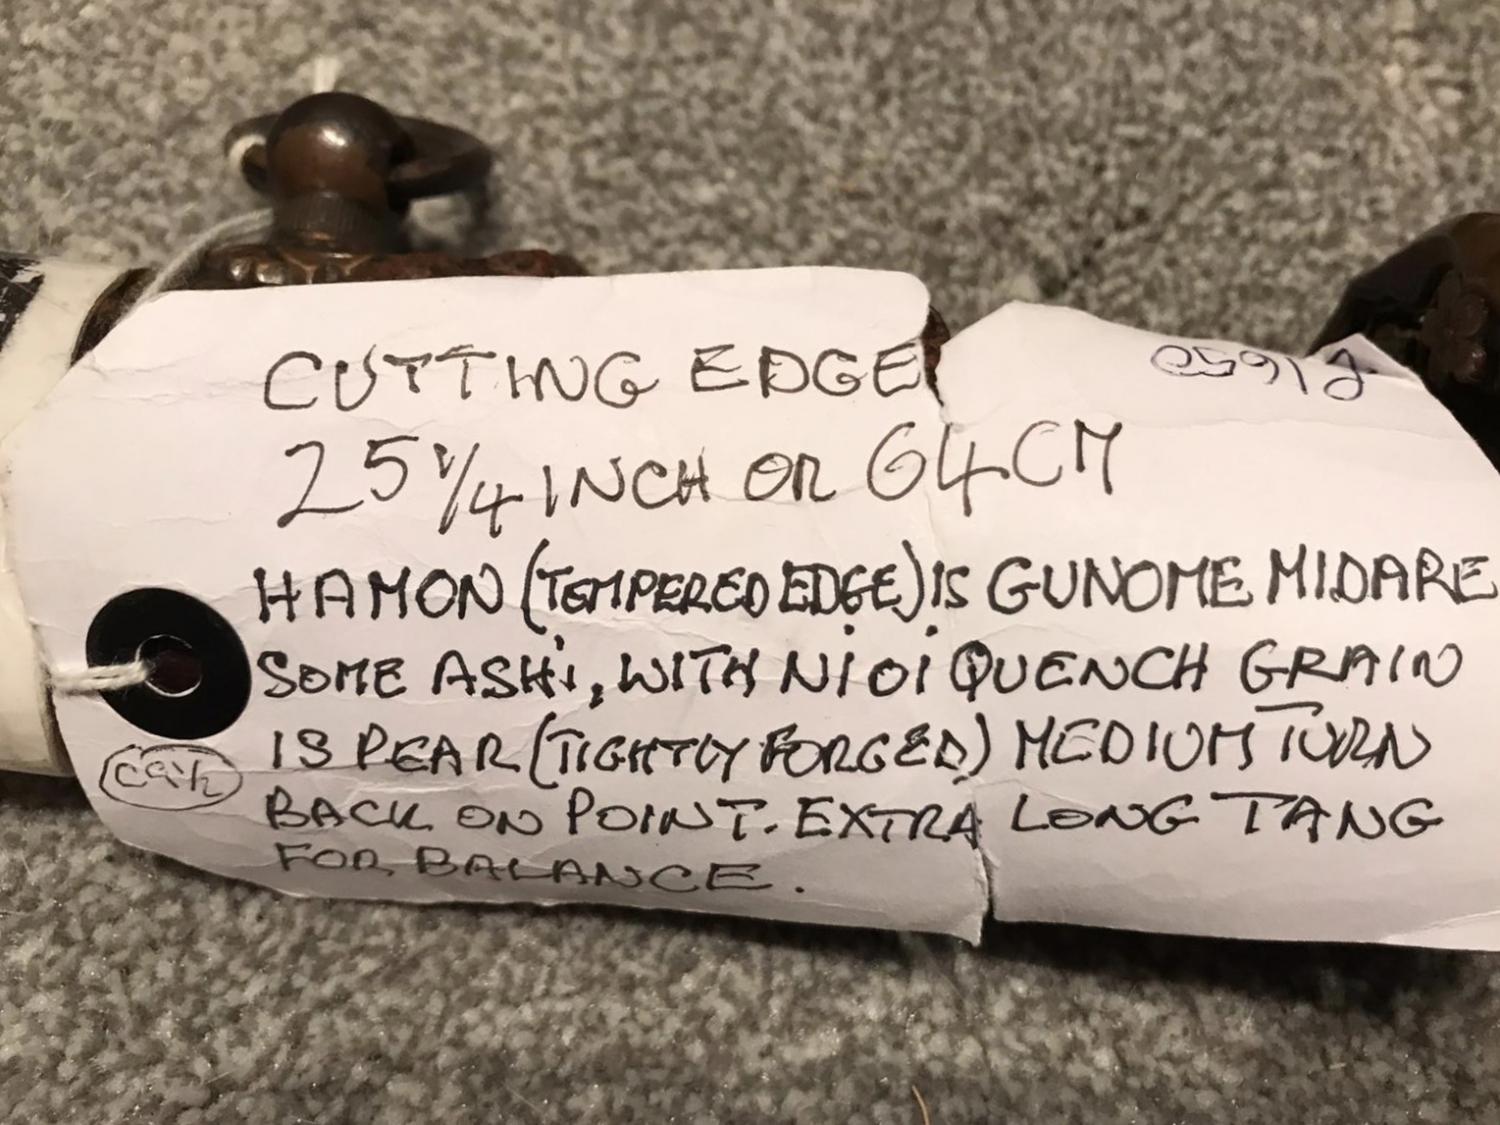 CUTTING EDGE
25 1/4 INCH OR 64CM
HAMON (TEMPERED EDGE) IS GUNOME MIDARE
SOME ASHi, WITH NiOi QUENCH GRAIN
IS PEAR (TIGHTLY FORGED) MEDIUM TURN
BACK ON POINT. EXTRA LONG TANG
FOR BALANCE.